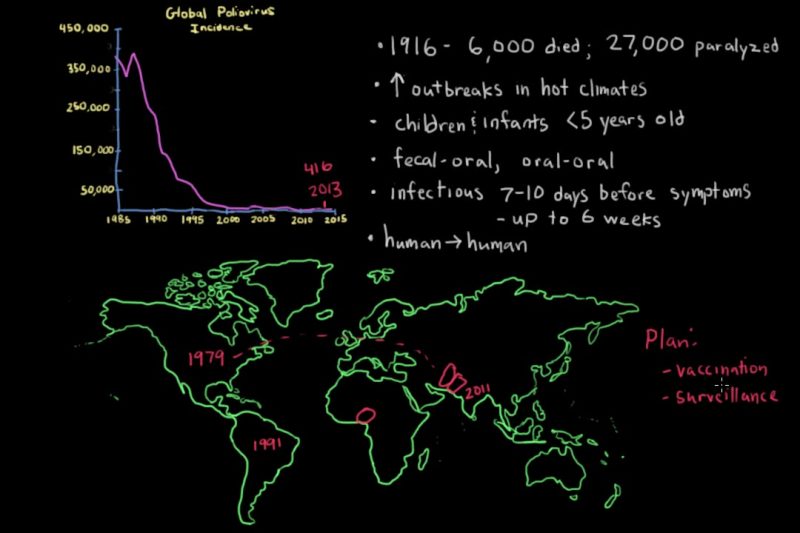 Global Poliovirus
Incidence
450,000
350,000
250,000
150,000
50,000
1985 1990 1995 2000 2005 2010 2015
416
2013
• 1916 - 6,000 died; 27,000 paralyzed
• ↑ outbreaks in hot climates
- children & infants <5 years old
• fecal-oral, oral-oral
• infectious 7-10 days before symptoms
- up to 6 weeks
• human → human
1979
1991
2011
Plan:
- vaccination
- surveillance